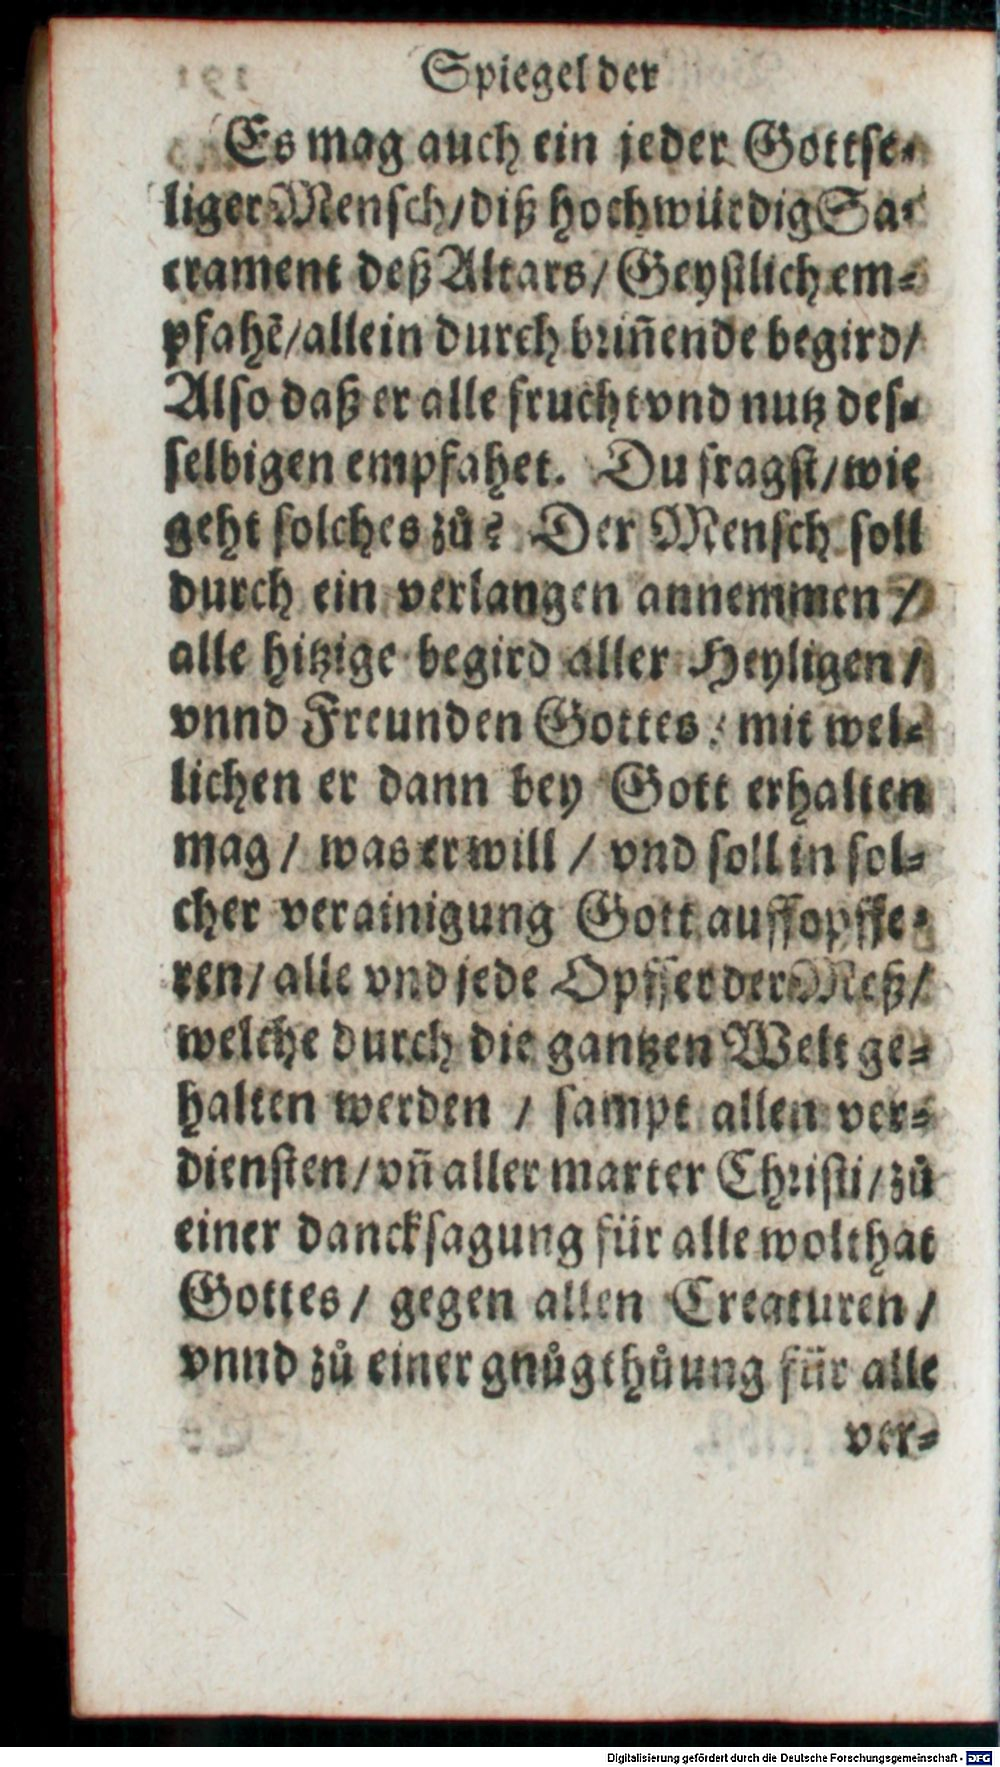 Spiegel der
Es mag auch ein jeder Gottse-
liger Mensch/diß hochwürdig Sa-
crament deß Altars/Geystlich em-
pfahẽ/allein durch briñende begird/
Also daß er alle frucht vnd nutz des-
selbigen empfahet. Du fragst/wie
geht solches zů? Der Mensch soll
durch ein verlangen annemmen /
alle hitzige begird aller Heyligen /
vnnd Freunden Gottes: mit wel-
lichen er dann bey Gott erhalten
mag / was er will / vnd soll in sol-
cher verainigung Gott auffopffe-
ren/ alle vnd jede Opffer der Meß/
welche durch die gantzen Welt ge-
halten werden / sampt allen ver-
diensten/vñ aller marter Christi/zů
einer dancksagung für alle wolthat
Gottes/ gegen allen Creaturen /
vnnd zů einer gnůgthůung für alle
ver-
Digitalisierung gefördert durch die Deutsche Forschungsgemeinschaft - DFG